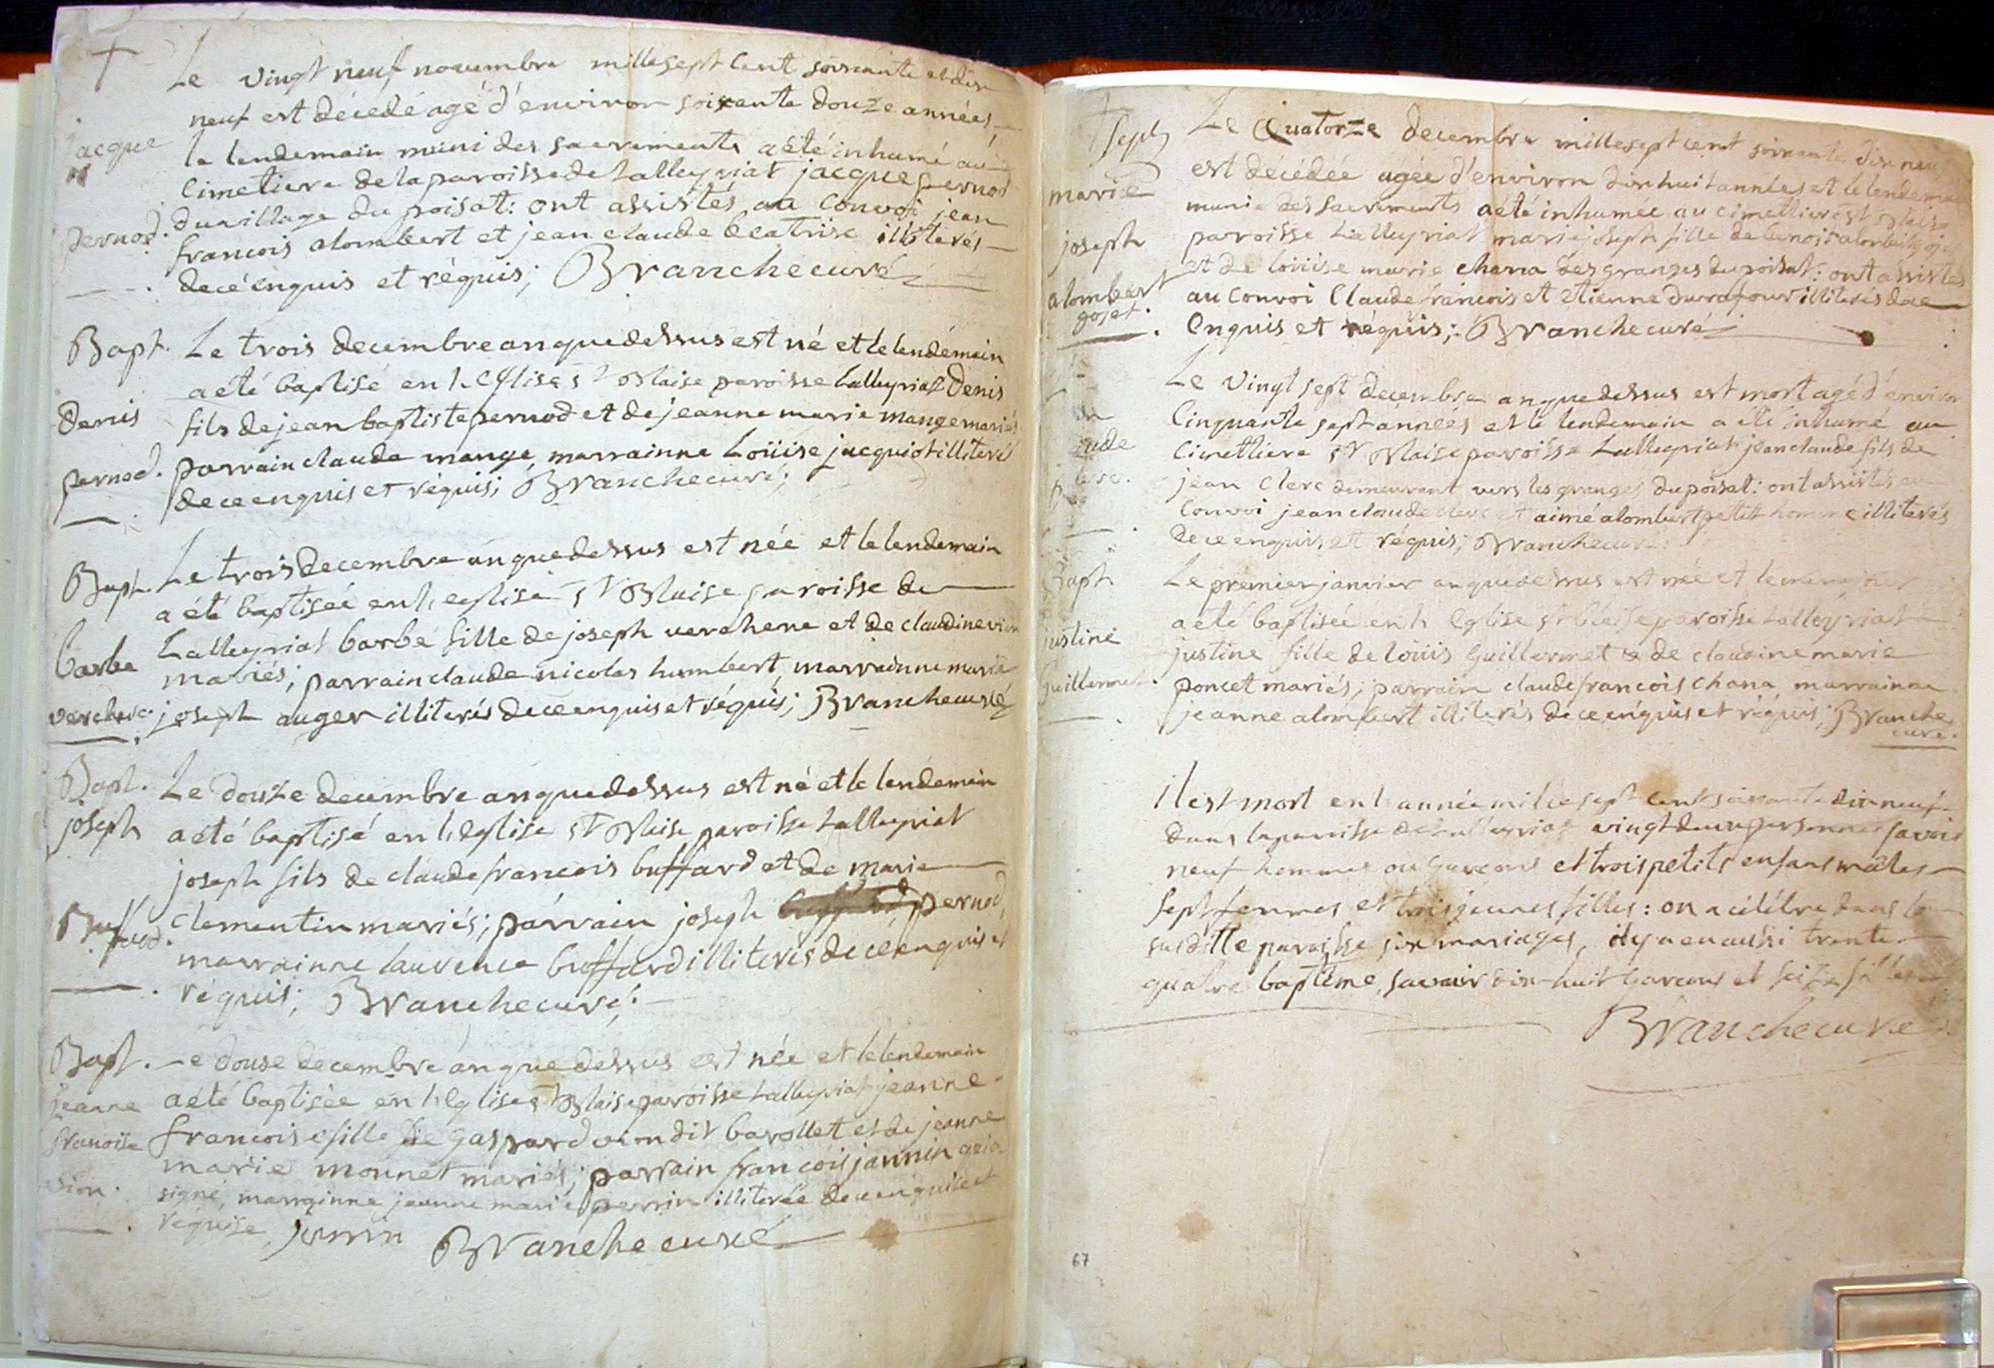 †
Le vingt neuf novembre mille sept cent soixante et dix
neuf est décedé agé d'environ soixante douze années
jacque
le lendemain muni des sacrements a été inhumé au
cimetiere de la paroisse de Lalleyriat jacque pernod
pernod.
du village du poisat: ont assistés au convoi jean
francois alombert et jean claude beatrise illiterés
decé enquis et réquis; Branche curé
Bapt.
Le trois decembre an que dessus est né et le lendemain
a été baptisé en l'Eglise st Blaise paroisse Lalleyriat Denis
Denis
fils de jean baptiste pernod et de jeanne marie mange mariés
pernod.
parrain claude mange, marrainne Loüise jacquiot illiterés
de ce enquis et réquis; Branche curé;
Bapt.
Le trois decembre an que dessus est née et le lendemain
a été baptisée en l'eglise st Blaise paroisse de
Barbe
Lalleyriat barbe fille de joseph verchere et de claudine vion
mariés; parrain claude nicolas humbert, marrainne marie
verchere.
joseph auger illiterés de ce enquis et réquis; Branche curé
Bapt.
Le douze decembre an que dessus est né et le lendemain
joseph
a été baptisé en l'Eglise st Blaise paroisse Lalleyriat
joseph fils de claude francois buffard et de marie
Buffard.
clementin mariés; parrain joseph pernod,
marrainne laurence buffard illiterés de ce enquis et
réquis; Branche curé;
Bapt.
Le douse decembre an que dessus est née et le lendemain
jeanne
a été baptisée en l'Eglise st Blaise paroisse Lalleyriat jeanne
francoise
francoise fille de gaspard vion dit barollet et de jeanne
marie monnet mariés; parrain francois jannin qui a
vion.
signé, marrainne jeanne marie perrin illiterée de ce enquise et
réquise, jannin Branche curé
†
Seph
Le Quatorze decembre mille sept cent soixante dix neuf
est décédée agée d'environ dix huit années et le lendemain
marie
munie des sacrements a été inhumée au cimetiere st Blaise
joseph
paroisse Lalleyriat marie joseph fille de benoit alombert gojet
et de loüise marie chana des granges du poisat: ont assistés
alombert
gojet.
au convoi Claude francois et etienne durafour illiterés de ce
enquis et réquis; Branche curé
Le vingt sept decembre an que dessus est mort agé d'environ
cinquante sept années et le lendemain a été inhumé au
cimettiere st Blaise paroisse Lalleyriat jean claude fils de
clerc.
jean clerc demeurant vers les granges du poisat: ont assistés au
convoi jean claude clerc et aimé alombert petit homme illiterés
de ce enquis et réquis; Branche curé.
Bapt
Le premier janvier an que dessus est née et le meme jour
a été baptisée en l'Eglise st Blaise paroisse Lalleyriat
justine
justine fille de loüis Guillermet & de claudine marie
Guillermet.
poncet mariés; parrain claude francois chana, marrainne
jeanne alombert illiterés de ce enquis et réquis; Branche
curé.
il est mort en l'année mille sept cent soixante dix neuf
dans la paroisse de Lalleyriat vingt deux personnes savoir
neuf hommes ou garcons et trois petits enfans mâles
sept femmes et trois jeunes filles: on a célébre dans la
susditte paroisse six mariages, il y a eu aussi trente
quatre baptême, savoir dix-huit garcons et seize filles
Branche curé
67